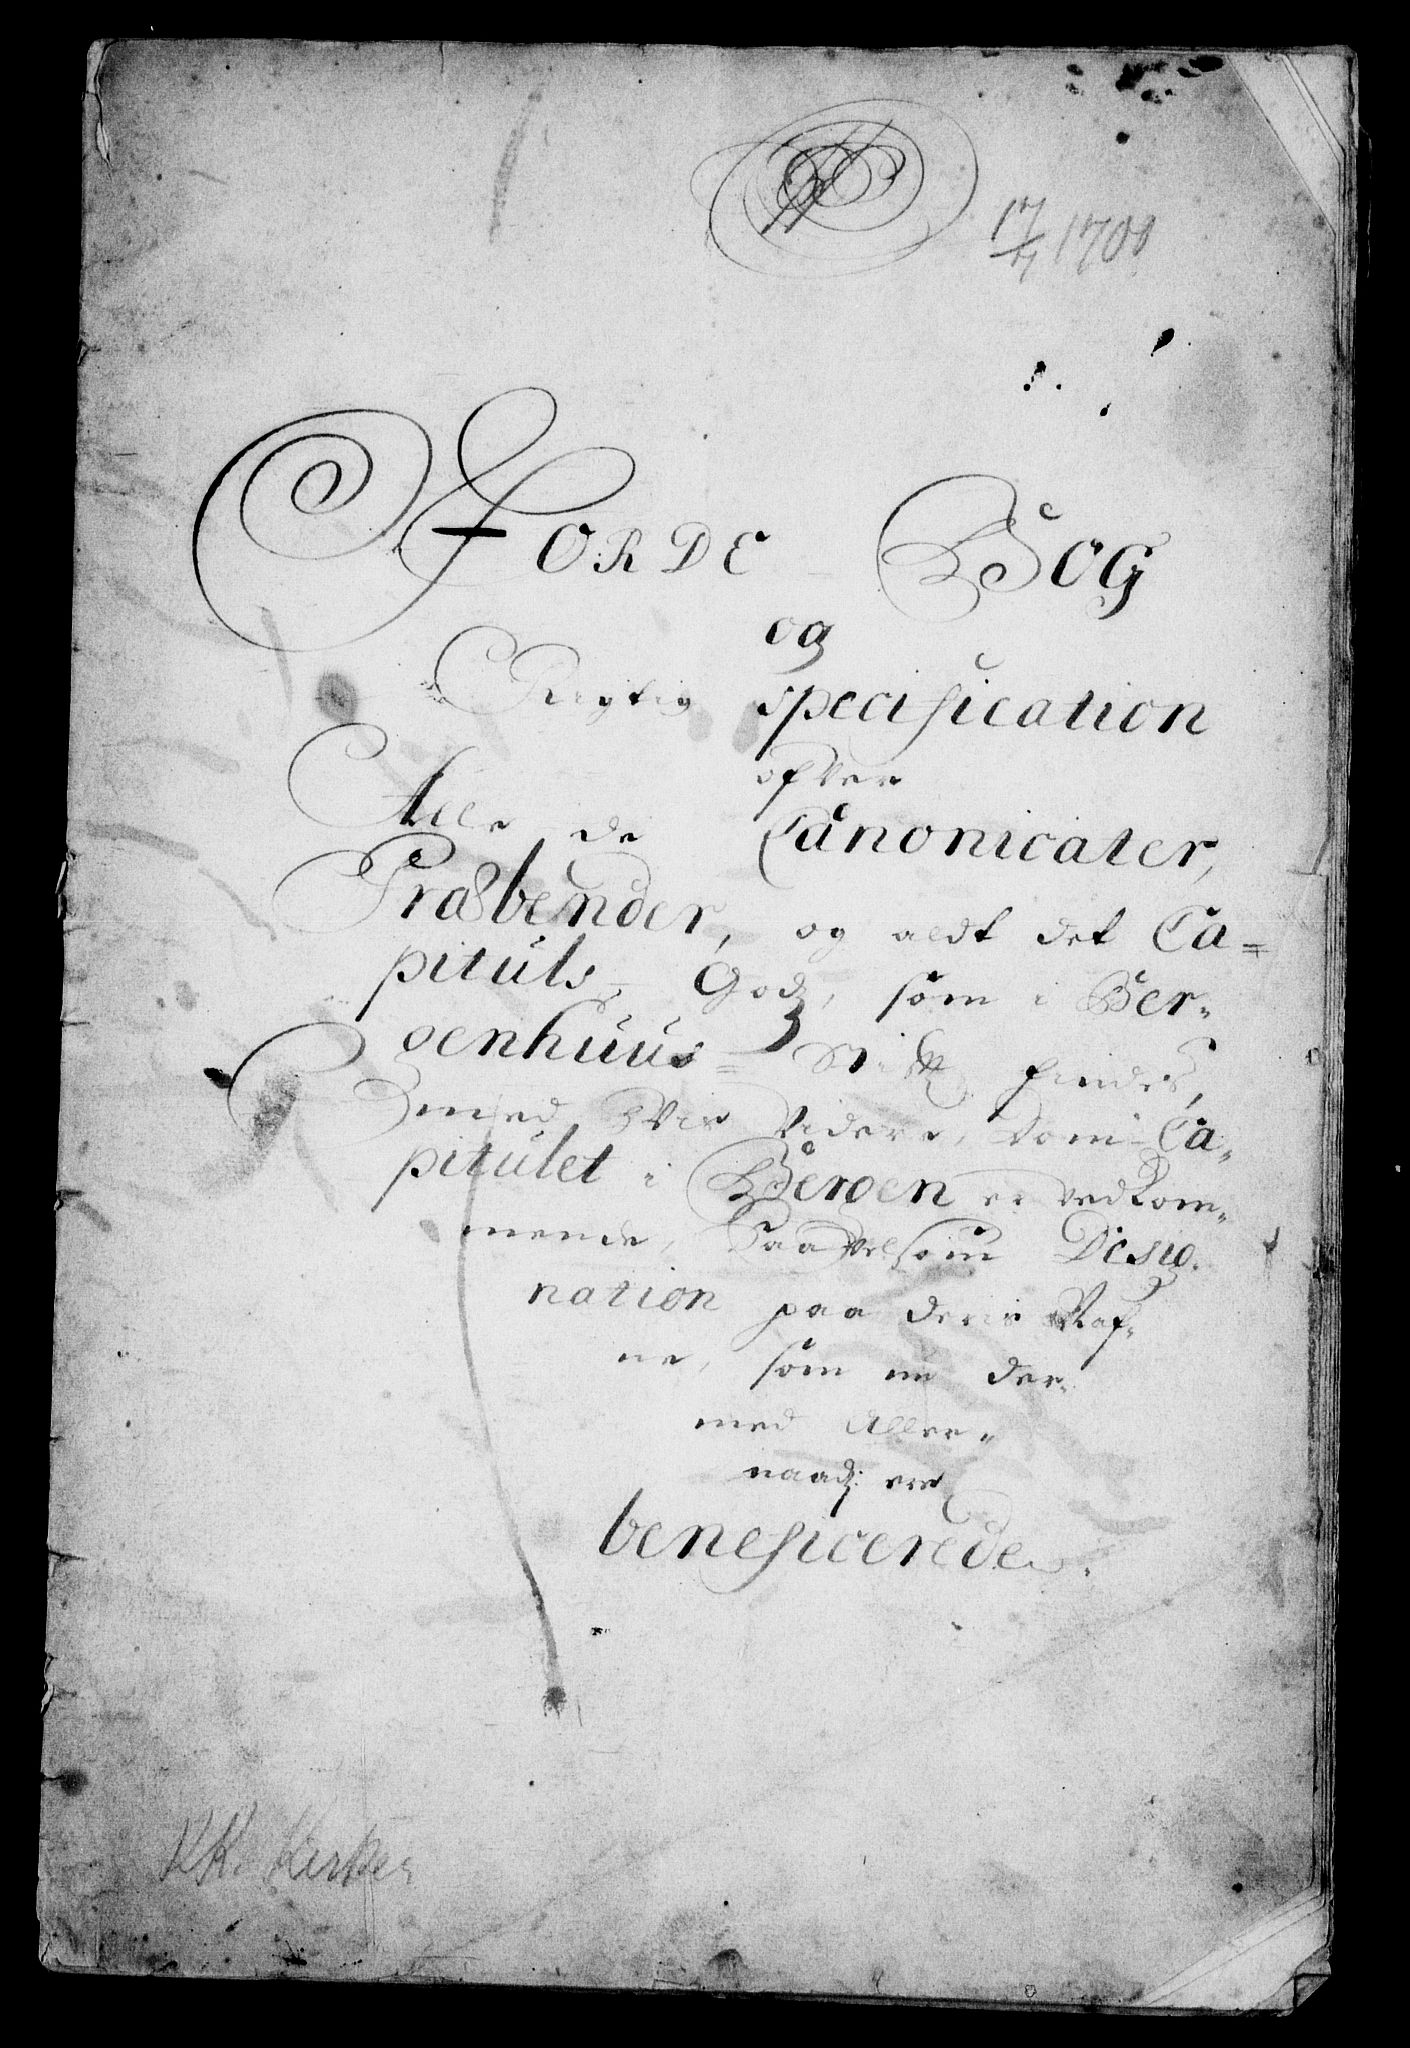 17/7 1700
JORDE Bog
og
Rigtig specification
ofver
Alle de Canonicater,
Præbender, og aldt det Ca=
pituls Godz, som i Ber-
genhuus= Stift findes,
med hvis videre, som Ca-
pitulet i Bergen er vedkom-
mende, Saavelsom Desig-
nation paa deris Nafne
ne, som nu der-
med Aller-
naadː ere
beneficerede.
KK. Kirker